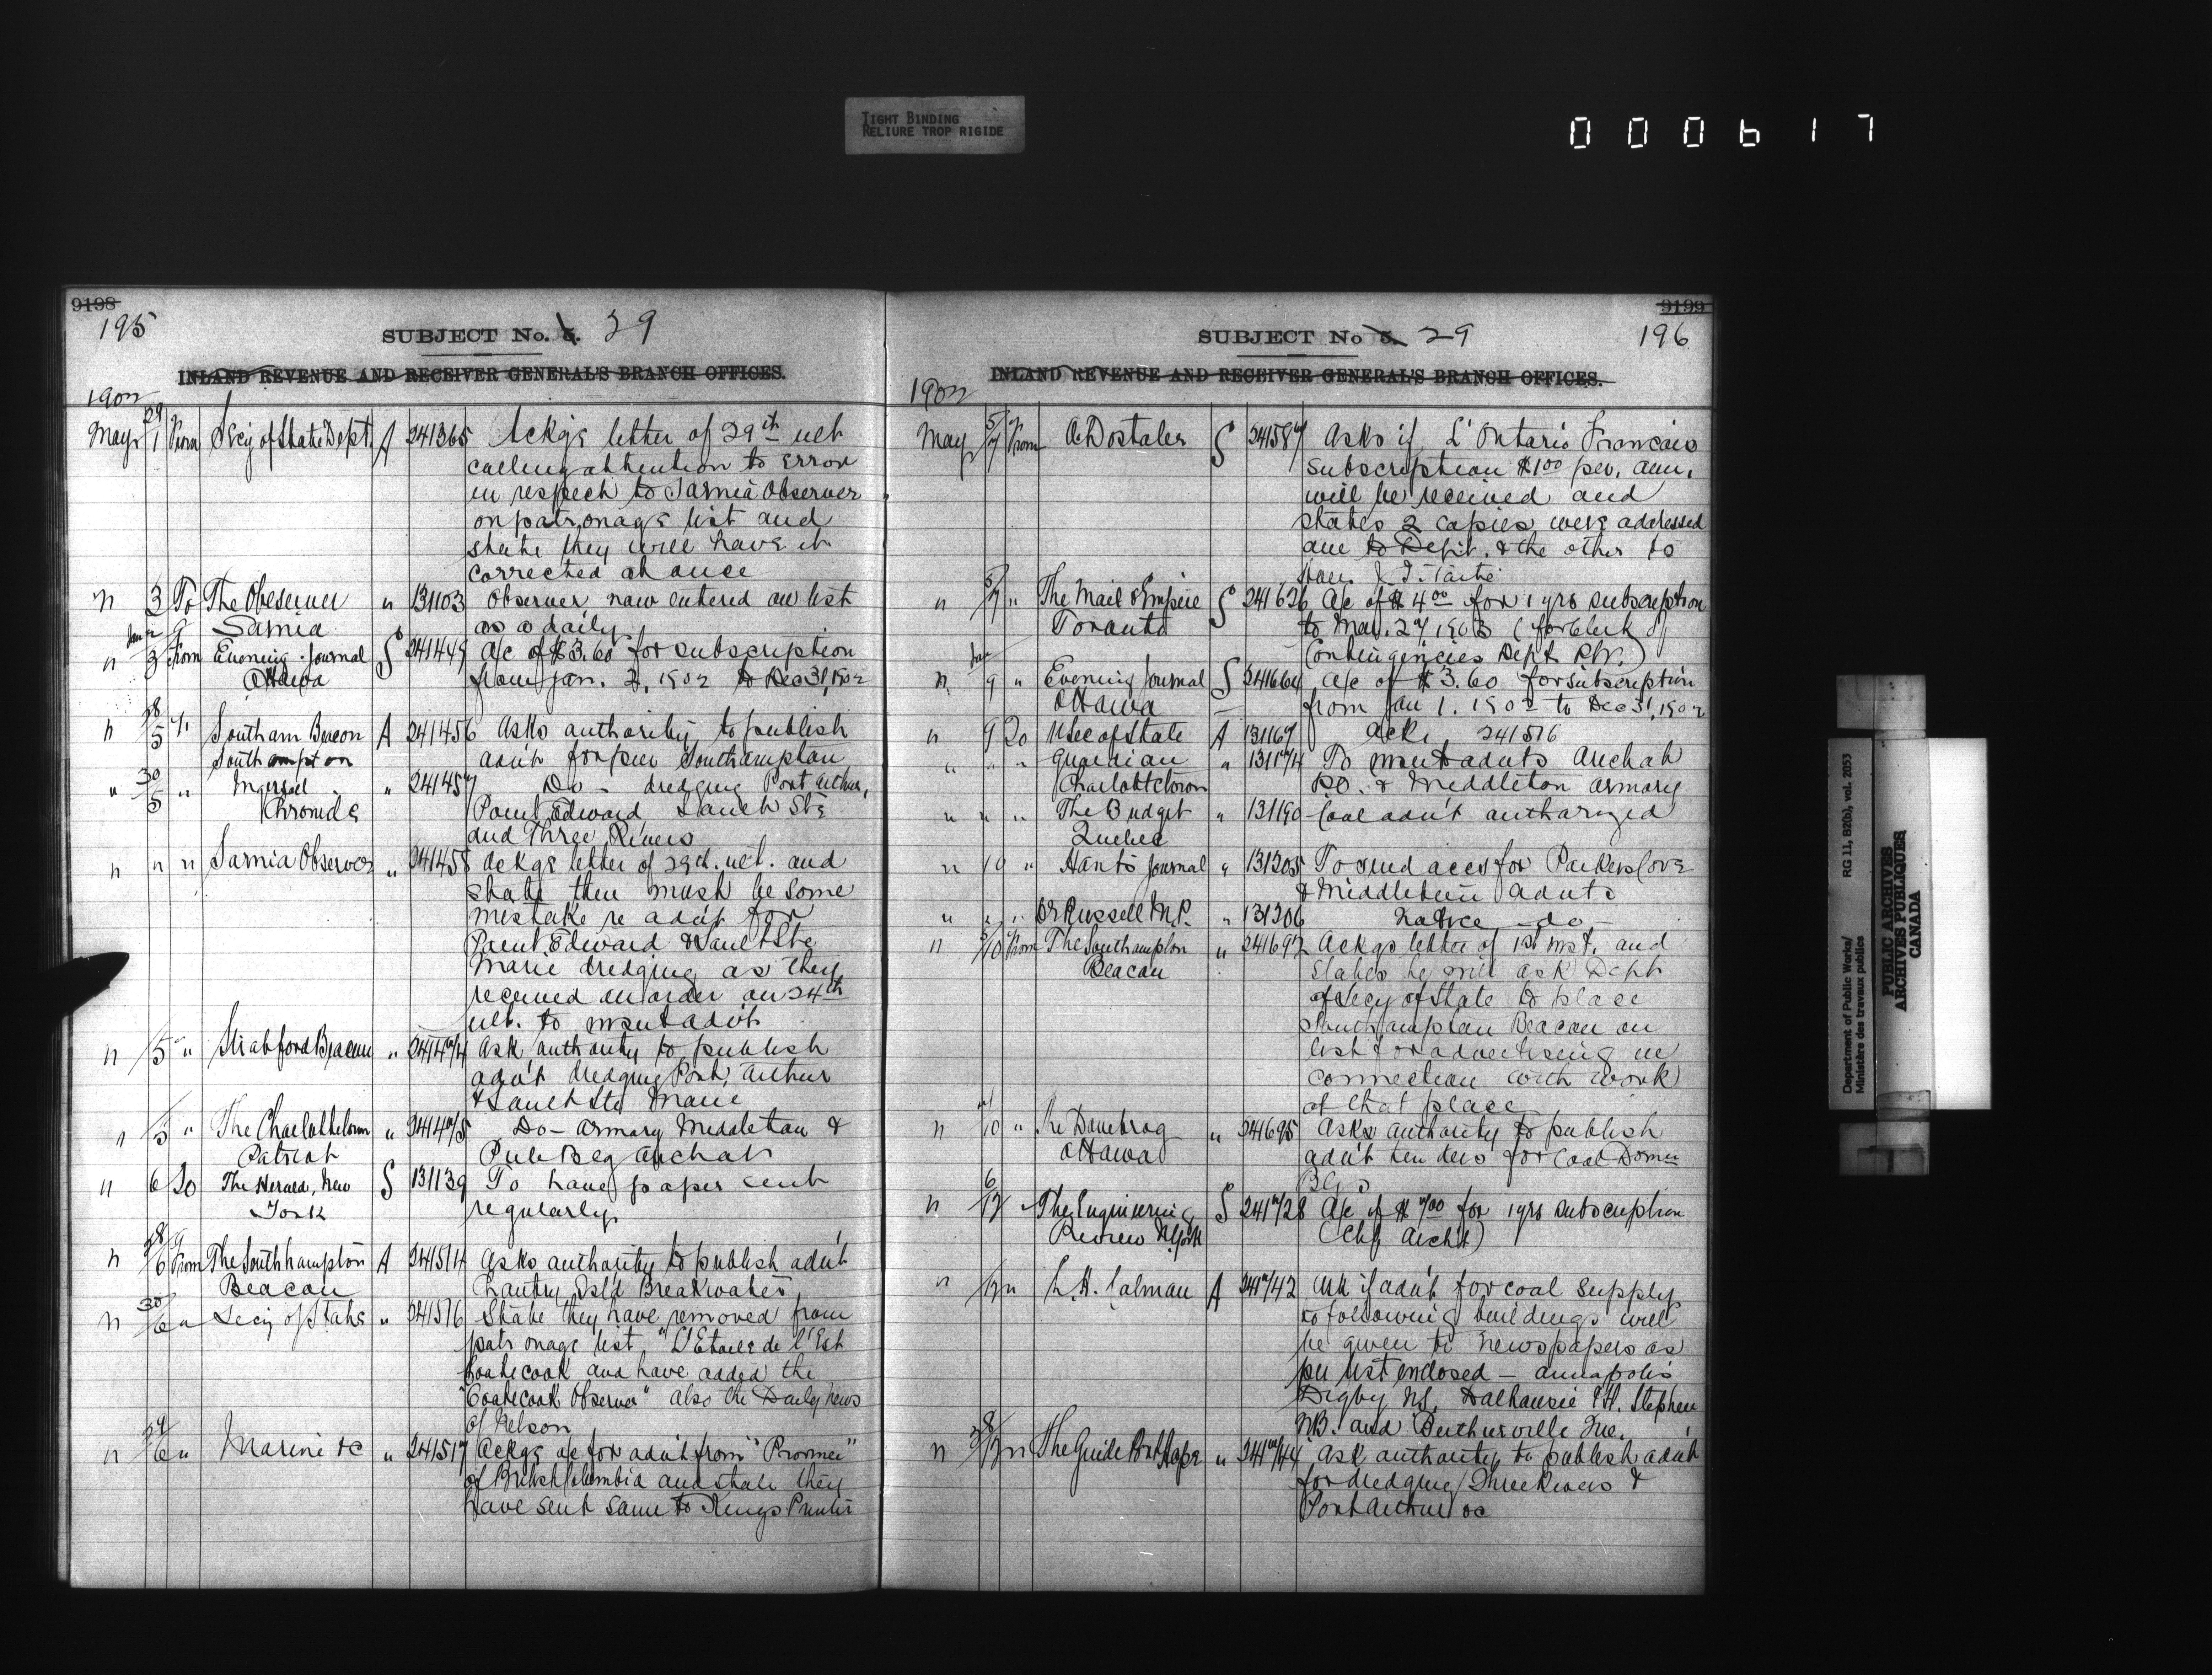 TIGHT BINDING
RELIURE TROP RIGIDE
000617
9198
195
SUBJECT No. 5. 29
INLAND REVENUE AND RECEIVER GENERAL'S BRANCH OFFICES.
1902
May 29/1 From Secy of State Dept. A 241365 Ackgs letter of 29th ult
calling attention to error
in respect to Sarnia Observer
on patronage list and
state they will have it
corrected at once
" 3 To The Observer " 131103 Observer now entered on list
Sarnia as a daily
" 3 From Evening Journal S 241449 a/c of $3.60 for subscription
Ottawa from Jan. 2, 1902 to Dec 31, 1902
" 28/5 " Southam Beacon A 241456 Asks authority to publish
Southampton advt for pier Southampton
" 30/5 " Ingersoll " 241457 Do - dredging Port Arthur,
Chronicle Point Edward Sault Ste
and Three Rivers
" " " Sarnia Observer " 241458 Ackgs letter of 29th. ult. and
state there must be some
mistake re advt for
Point Edward & Sault Ste
Marie dredging as they
received an order on 24th
ult. to insert advt
" 5 " Stratford Beacon " 241474 Ask authority to publish
advt dredging Port Arthur
& Sault Ste Marie
" 5 " The Charlottetown " 241475 Do - Armory Middleton &
Patriot Pub Bldg Antigonish
" 6 To The Herald, New S 131139 To have paper sent
York regularly
" 28/6 From The Southhampton A 241514 Asks authority to publish advt
Beacon Chantry Isl'd Breakwater
" 30/6 " Secy of State " 241516 State they have removed from
patronage list "L'Etoile de l'Est
Coaticook and have added the
"Coaticook Observer" also the Daily News
of Nelson
" 6 " Marine &c " 241517 Ackgs a/c for advt from "Province"
of British Columbia and state they
have sent same to Kings Printer
9199
196
SUBJECT No 5. 29
INLAND REVENUE AND RECEIVER GENERAL'S BRANCH OFFICES.
1902
May 5/7 From A. Dostaler S 241587 Asks if L'Ontario Francais
subscription $1.00 per. ann.
will be received and
states 2 copies were addressed
one to Dept. & the other to
Hon. J. I. Tarte
" 5/7 " The Mail & Empire S 241626 A/c of $4.00 for 1 yrs subscription
Toronto to Mar. 27, 1903 (for Clerk of
Contingencies Dept P.W.)
" 9 " Evening Journal S 241664 A/c of $3.60 for subscription
Ottawa from Jan 1. 1902 to Dec 31, 1902
" 9 To U Sec of State A 131167 Ack. 241516
" " " Guardian " 131174 To insert advts
Charlottetown P.O. & Middleton armory
" " " The Budget " 131190 Coal advt authorized
Quebec
" 10 " Hants Journal " 131205 To send accs for Parkers Cove
& Middleton advts
" " " Dr Russell M.P. " 131206 Notice -do-
" 5/10 From The Southampton " 241692 Ackgs letter of 1st inst. and
Beacon states he will ask Dept
of Secy of State to place
Southampton Beacon on
list for advertising in
connection with work
at that place
" 10 " The Danebrog " 241695 Asks authority to publish
Ottawa advt tenders for Coal Domn
Bldgs
" 6/12 " The Engineering S 241728 A/c of $ for 1 yrs subscription
Review N York (Chf Archt)
" 12 " L. H. Colman A 241742 Ask if advt for coal supply
to following buildings will
be given to newspapers as
per list enclosed - Annapolis
Digby N.S. Dalhousie & St. Stephen
N.B. and Berthierville Que.
" 12 " The Guide Port Hope " 241744 Ask authority to publish advt
for dredging Three Rivers &
Port Arthur &c
Department of Public Works/
Ministère des travaux publics
RG 11, B2(b), vol. 2053
PUBLIC ARCHIVES
ARCHIVES PUBLIQUES
CANADA